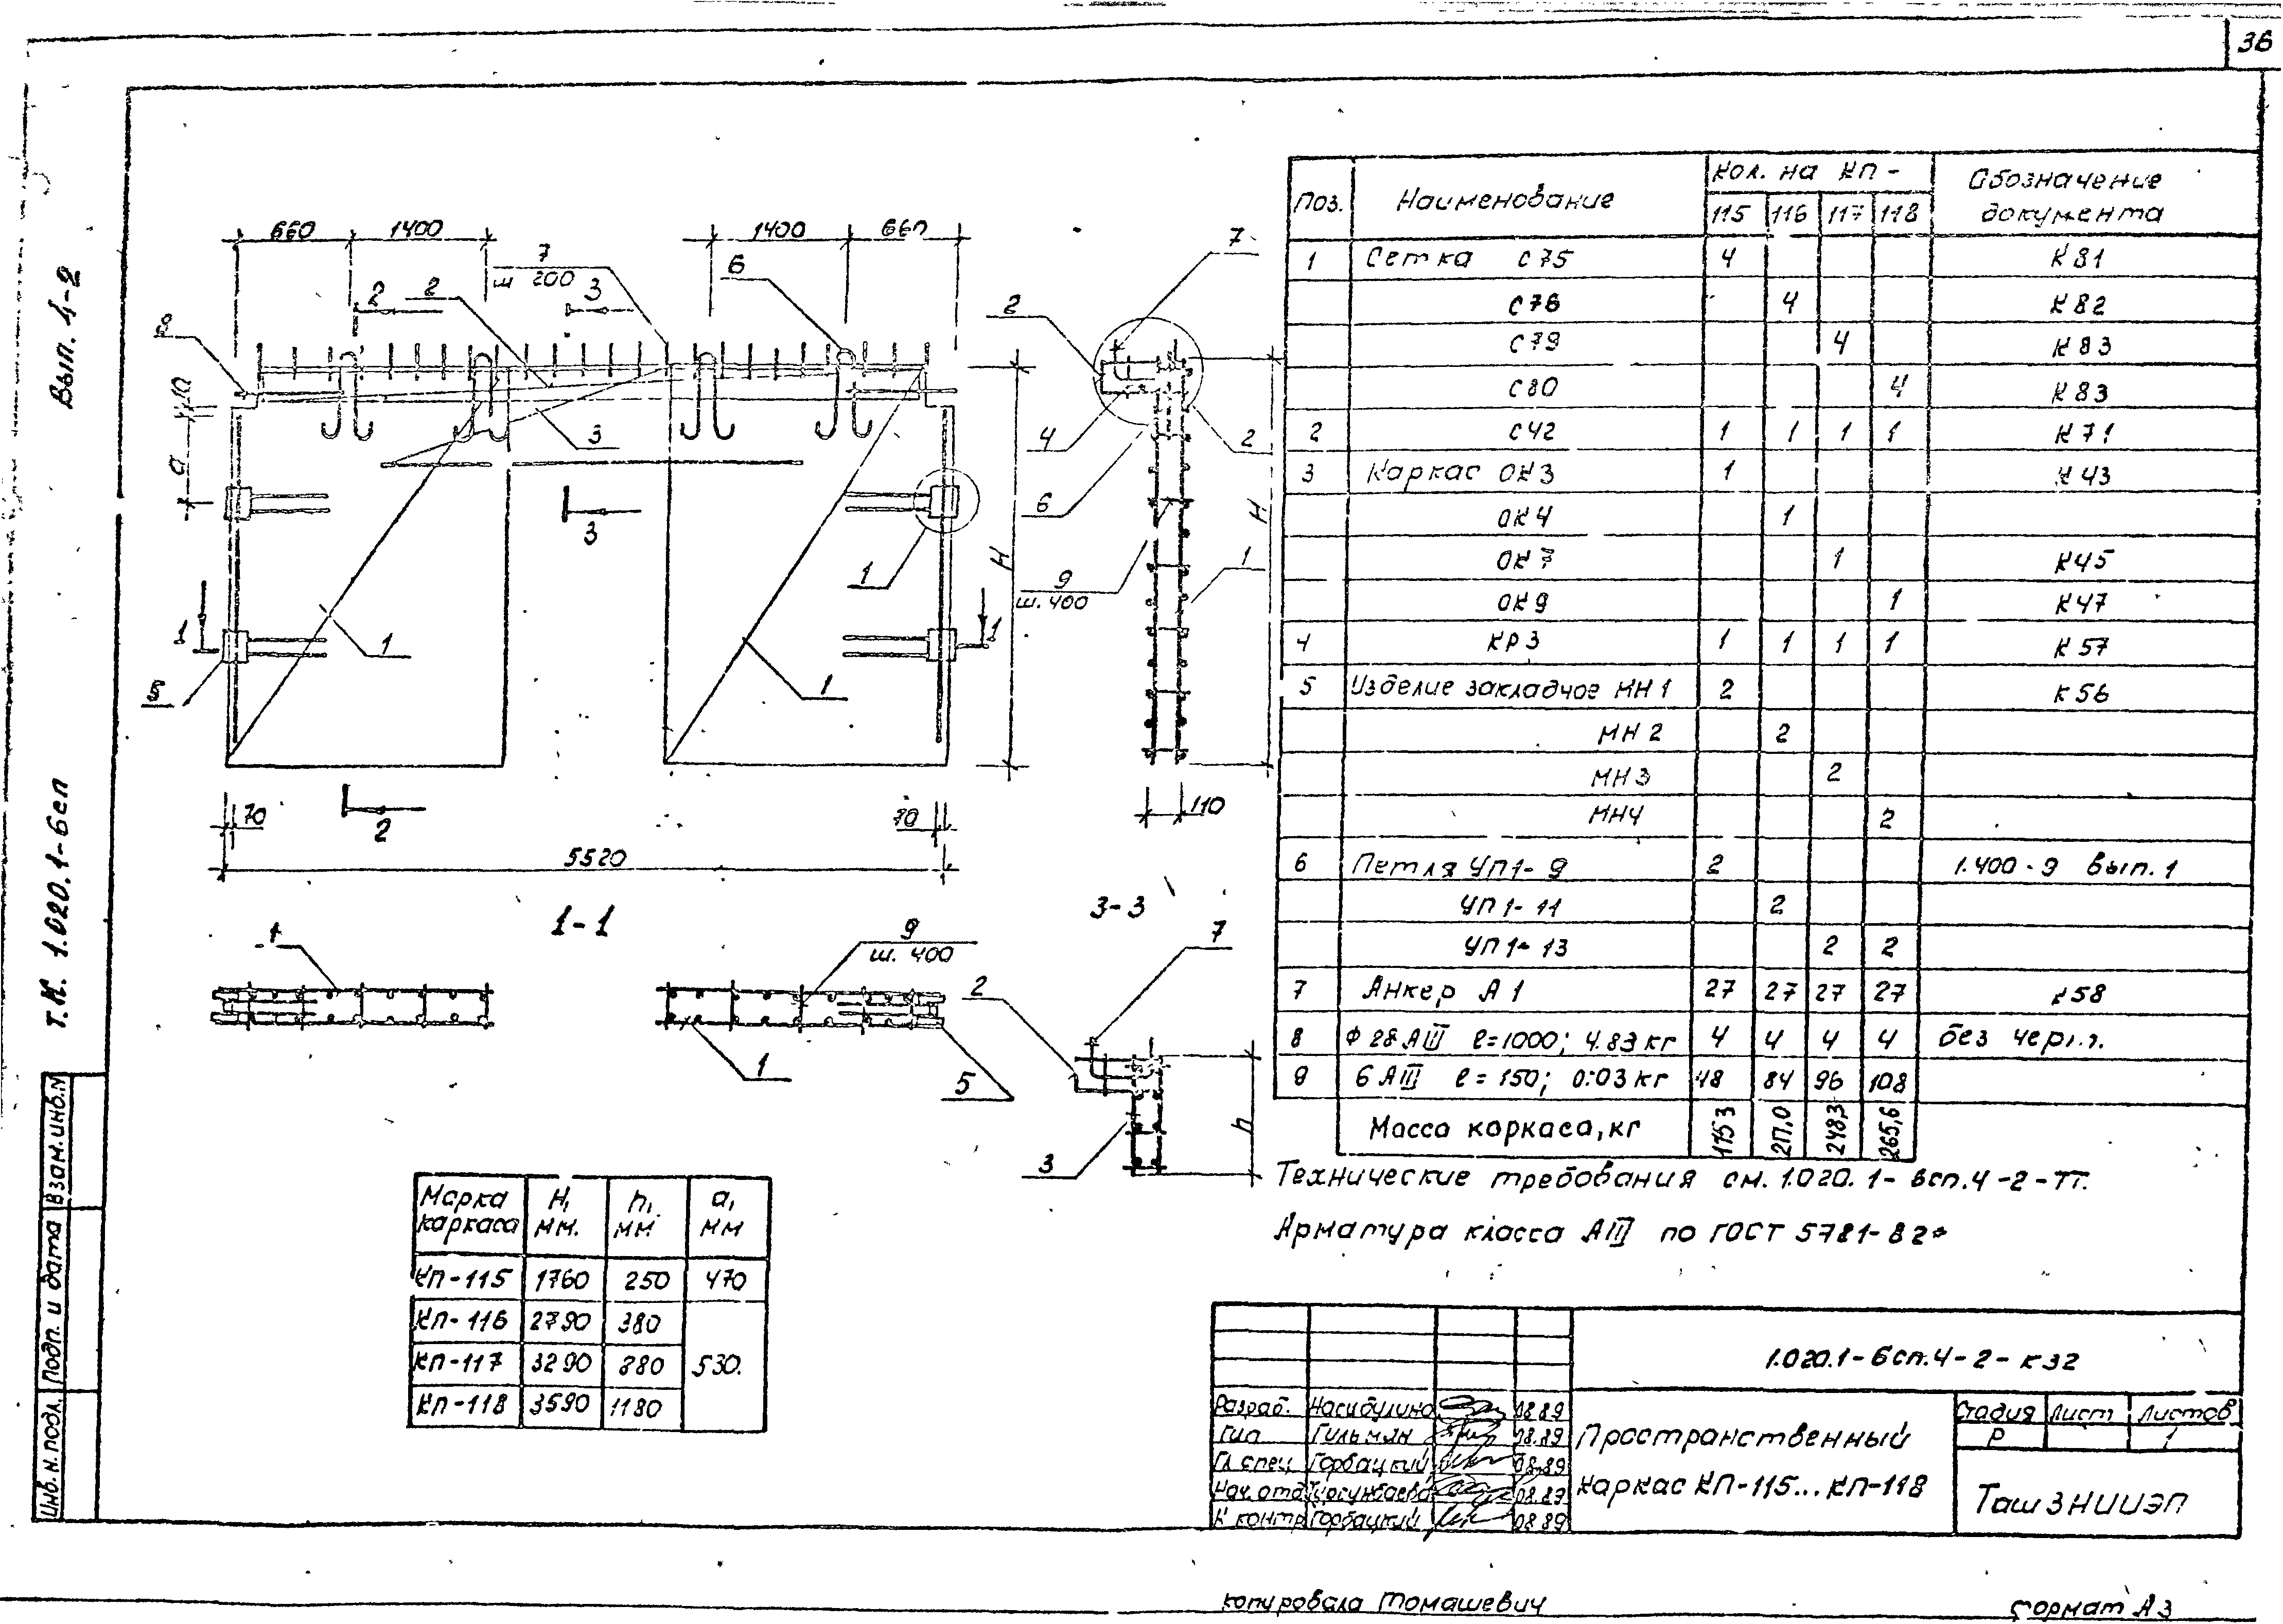 36
Вып. 4-2
Т.К. 1.020.1-6сп
Взам.инв.N
Подп. и дата
Инв. N. подл.
660 1400 1400 660
7
ш 200
6
2 2 3
8
3
а
3
1
1 1
1 1
5
Н
70 70
2
5520
7
2
4 2
6
9
ш. 400
1
Н
110
1-1
1
9
ш. 400
1
5
3-3
7
2
3
h
Поз. Наименование Кол. на КП - Обозначение документа
115 116 117 118
1 Сетка С75 4 К81
С76 4 К82
С79 4 К83
С80 4 К83
2 С42 1 1 1 1 К71
3 Каркас ОК3 1 К43
ОК4 1
ОК7 1 К45
ОК9 1 К47
4 КР3 1 1 1 1 К57
5 Изделие закладное МН1 2 К56
МН2 2
МН3 2
МН4 2
6 Петля УП1-9 2 1.400-9 вып.1
УП1-11 2
УП1-13 2 2
7 Анкер А1 27 27 27 27 К58
8 Ф 28 АIII l=1000; 4.83 кг 4 4 4 4 без
9 6 АIII l=150; 0.03 кг 48 84 96 108
Масса каркаса, кг 248,3 265,6
Технические требования см. 1.020.1-6сп.4-2-ТТ.
Арматура класса АIII по ГОСТ 5781-82*
Марка каркаса Н, мм. h, мм а, мм
КП-115 1760 250 470
КП-116 2790 380
КП-117 3290 880 530.
КП-118 3590 1180
1.020.1-6сп.4-2-К32
Разраб. Насибулина 08.89
Гип Гильман 08.89
Гл спец Горбацкий 08.89
Нач. отд Турсунбаева 08.89
Н контр Горбацкий 08.89
Пространственный
каркас КП-115...КП-118
Стадия Лист Листов
Р 1
ТашЗНИИЭП
копировала Томашевич
формат А3